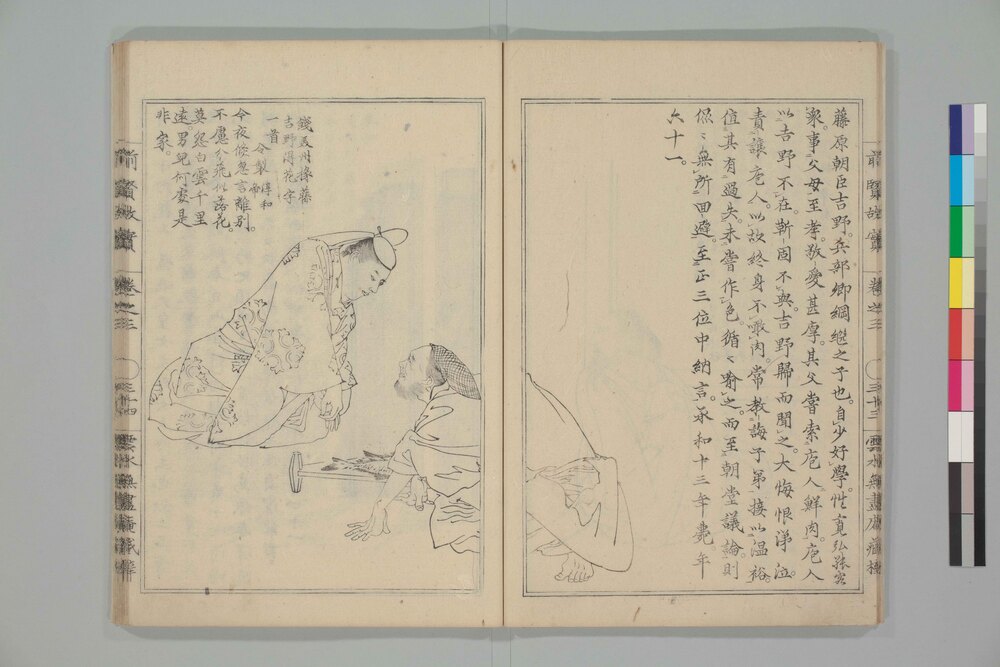 藤原朝臣吉野。兵部卿綱繼之子也。自少好學。性寛弘
家事父母至孝。敬愛甚厚。其父嘗索庖人鮮肉。庖人
以吉野不在。靳固不與。吉野歸而聞之。大悔恨涕泣。
責讓庖人。以故終身不噉肉。常教誨子弟。接以温裕。
值其有過失。未嘗作色。循〻喻之。而至朝堂議論。則
侃〻無所回避。至正三位中納言。承和十三年薨。年
六十一。
餞美州掾藤
吉野得花字
一首
令製
淳和
帝
今夜倏忽言離別。
不慮分飛似落花。
莫怨白雲千里
遠。男兒何處是
非家。
前賢故實
卷之三
三十三
雲水無盡庵藏
前賢故實
卷之三
三十四
雲水無盡庵藏